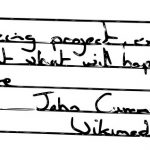 project,
t what will hap
e
John Cumm
Wikimed